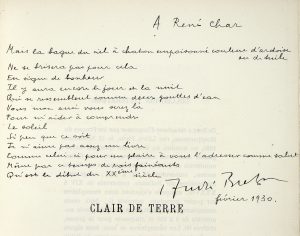 A René Char
Mais la bague du ciel à chaton empoisonné couleur d'ardoise
Ne se brisera pas pour cela
En signe de bonheur
Il y aura encore le jour et la nuit
Qui se ressemblent comme deux gouttes d'eau
Vous non aussi vous serez là
Pour m'aider à comprendre
Le soleil
Si peu que ce soit
Je n'aime pas assez un livre
Comme celui-ci pour un plaire à vous l'adresser comme
Même par ces temps de
Qu'est le début du XXème siècle
André Breton
février 1930.
CLAIR DE TERRE